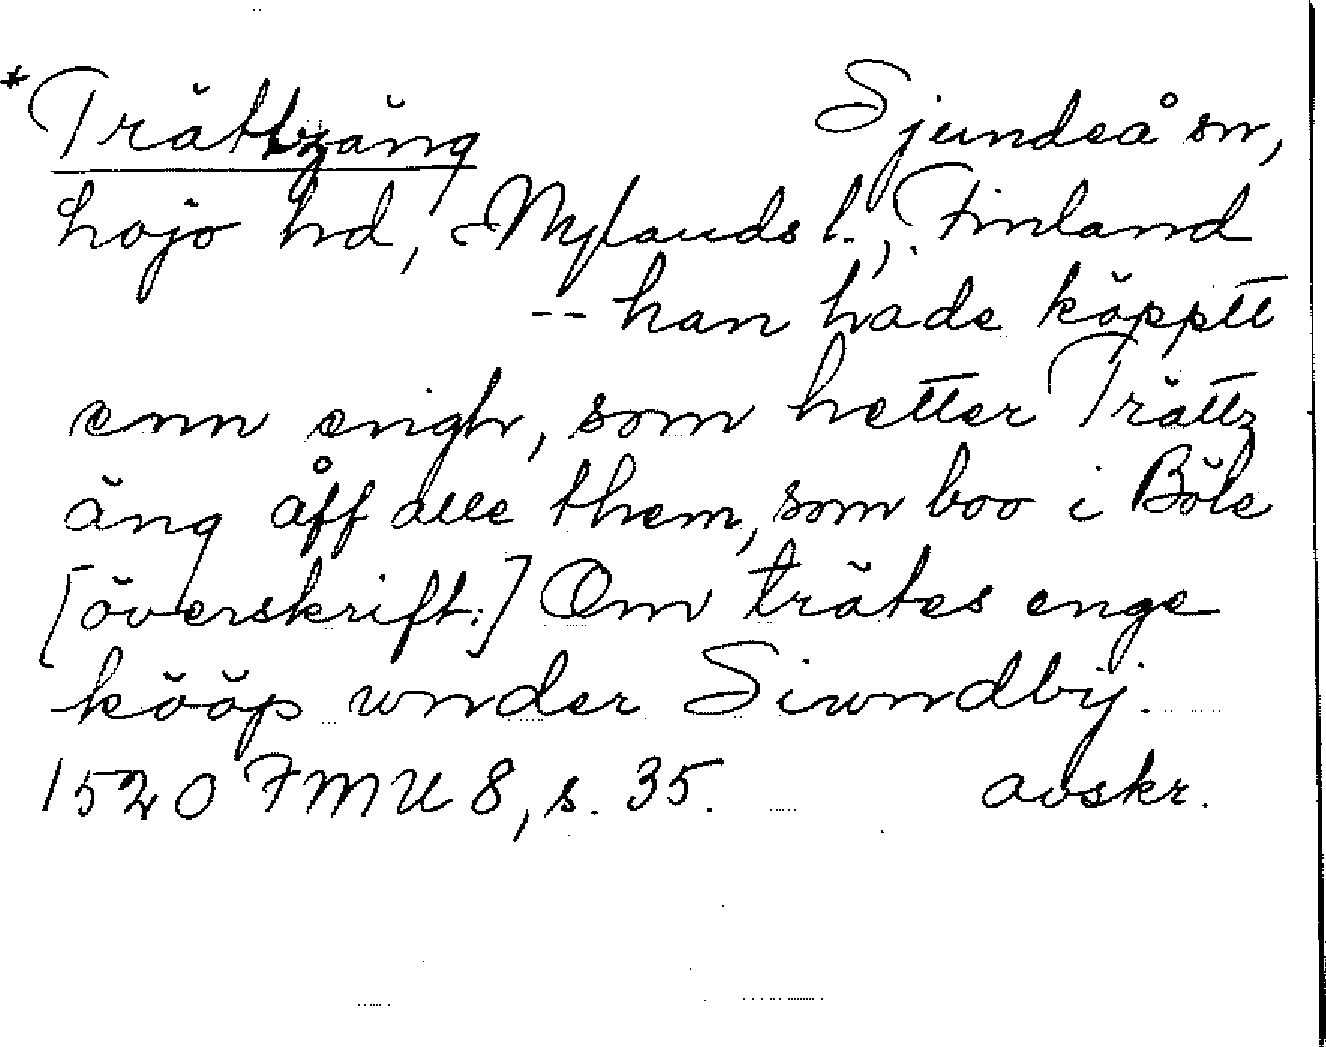 *Trättzäng Sjundeå sn,
Lojo hd, Nylands l., Finland
-- han hade köpptt
enn engh, som hetter Trättz
äng åff alle them, som boo i Böle
[överskrift:] Om trätes enge
kööp wnder Siwndbÿ.
1520 FMU 8, s. 35. avskr.